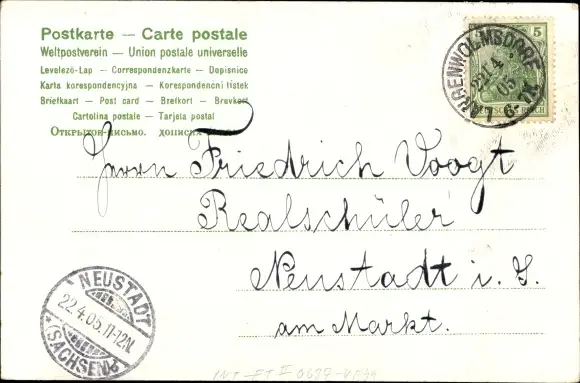 Postkarte — Carte postale
Weltpostverein — Union postale universelle
Levelező-Lap — Correspondenzkarte — Dopisnice
Karta korespondencyjna — Korespondencní listek
Briefkaart — Post card — Brefkort — Brevkort
Cartolina postale — Tarjeta postal
Открытое письмо.
LANGENWOLMSDORF
22 4 05
6-7N.
5
5
DEUTSCHES REICH
Herrn Friedrich Voogt
Realschüler
Neustadt i. S.
am Markt.
NEUSTADT
22.4.05.11-12N.
*(SACHSEN)b